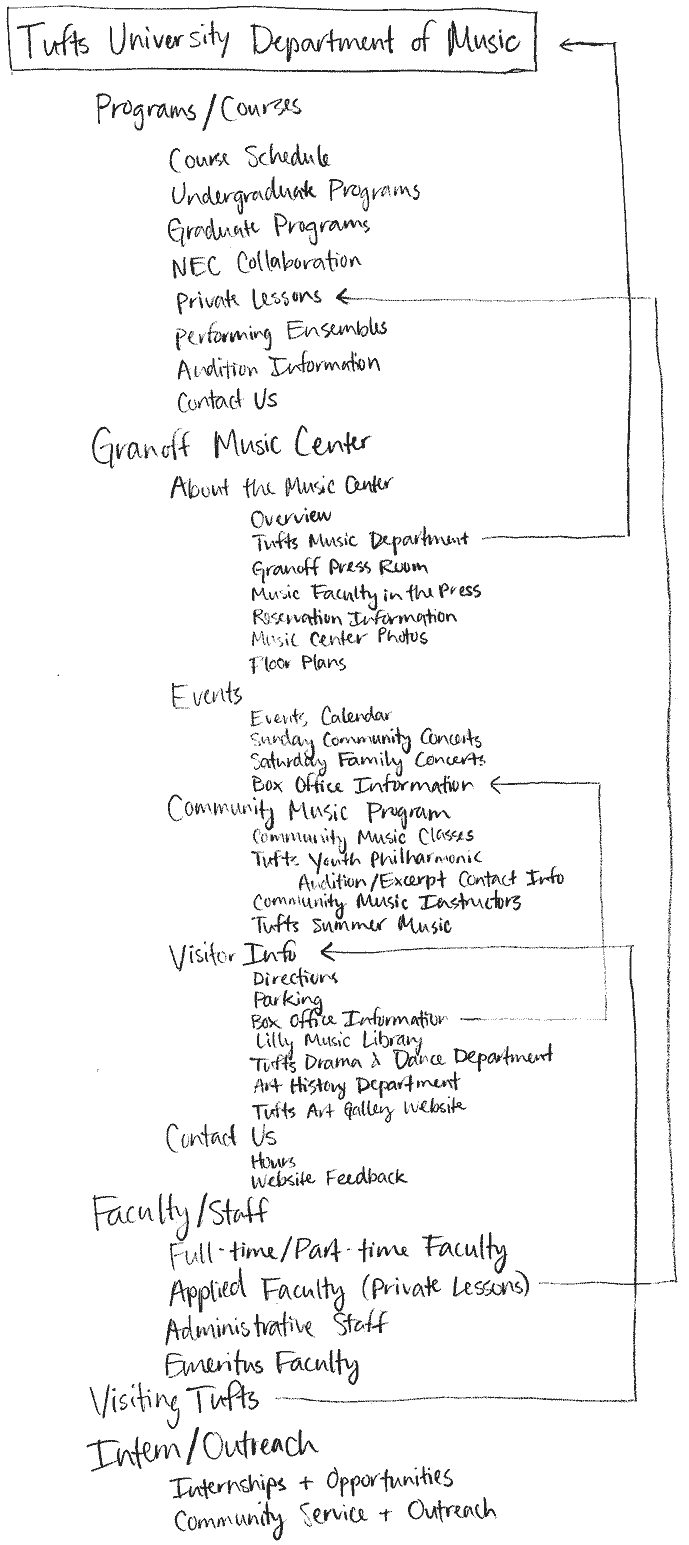 Tufts University Department of Music
Programs/Courses
Course Schedule
Undergraduate Programs
Graduate Programs
NEC Collaboration
Private Lessons
Performing Ensembles
Audition Information
Contact Us
Granoff Music Center
About the Music Center
Overview
Tufts Music Department
Granoff Press Room
Music Faculty in the Press
Reservation Information
Music Center Photos
Floor Plans
Events
Events Calendar
Sunday Community Concerts
Saturday Family Concerts
Box Office Information
Community Music Program
Community Music Classes
Tufts Youth Philharmonic
Audition/Excerpt Contact Info
Community Music Instructors
Tufts Summer Music
Visitor Info
Directions
Parking
Box Office Information
Lilly Music Library
Tufts Drama & Dance Department
Art History Department
Tufts Art Gallery Website
Contact Us
Hours
Website Feedback
Faculty/Staff
Full-time/Part-time Faculty
Applied Faculty (Private Lessons)
Administrative Staff
Emeritus Faculty
Visiting Tufts
Intern/Outreach
Internships + Opportunities
Community Service + Outreach